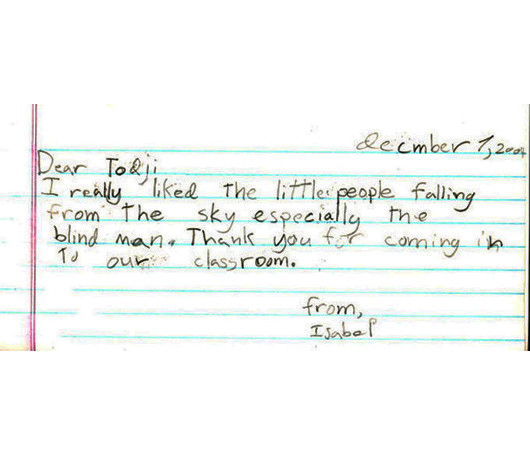 decmber 7, 2004
Dear Todji
I really liked the little people falling
from the sky especially the
blind man. Thank you for coming in
To our classroom.
from,
Isabel